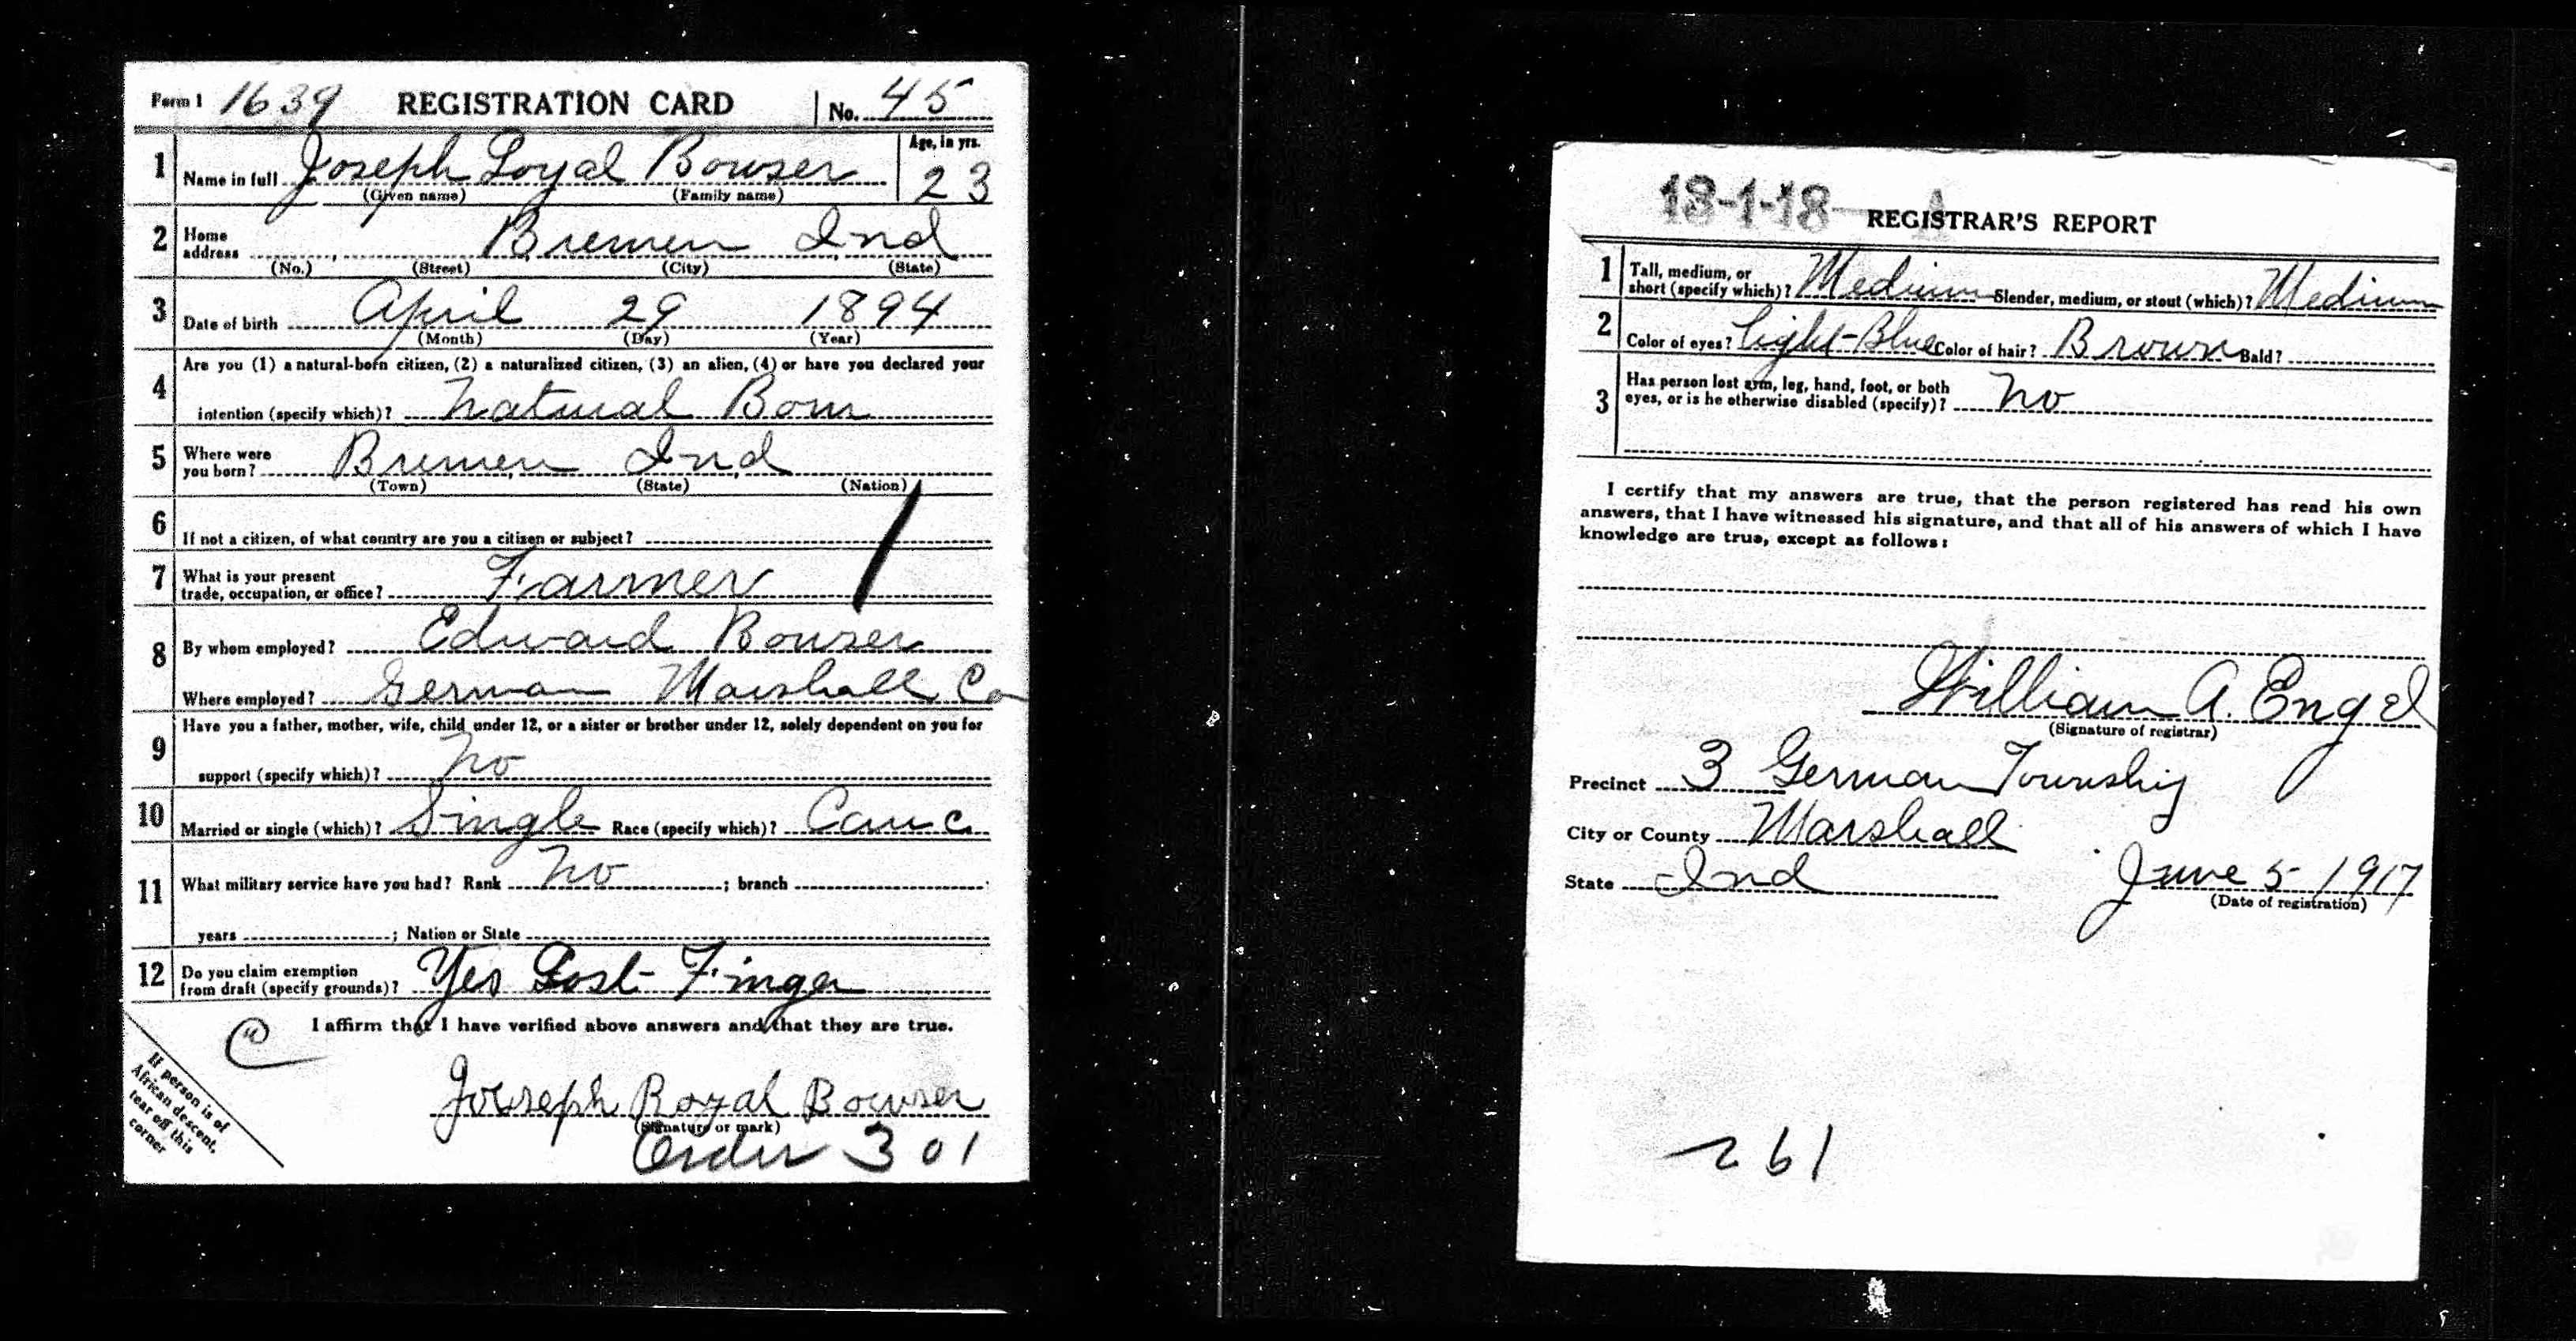 Form 1 1639 REGISTRATION CARD No. 45
1 Name in full Joseph Loyal Bowser Age, in yrs. 23
(Given name) (Family name)
2 Home address Bremen Ind
(No.) (Street) (City) (State)
3 Date of birth April 29 1894
(Month) (Day) (Year)
4 Are you (1) a natural-born citizen, (2) a naturalized citizen, (3) an alien, (4) or have you declared your
intention (specify which)? Natural Born
5 Where were you born? Bremen Ind
(Town) (State) (Nation)
6 If not a citizen, of what country are you a citizen or subject?
7 What is your present trade, occupation, or office? Farmer
8 By whom employed? Edward Bowser
Where employed? German Marshall Co
9 Have you a father, mother, wife, child under 12, or a sister or brother under 12, solely dependent on you for
support (specify which)? No
10 Married or single (which)? Single Race (specify which)? Cauc
11 What military service have you had? Rank No ; branch
years ; Nation or State
12 Do you claim exemption from draft (specify grounds)? Yes Lost Finger
I affirm that I have verified above answers and that they are true.
C
If person is of
African descent,
tear off this
corner
Joseph Royal Bowser
(Signature or mark)
Order 301
13-1-18 A
REGISTRAR'S REPORT
1 Tall, medium, or short (specify which)? Medium Slender, medium, or stout (which)? Medium
2 Color of eyes? Light-Blue Color of hair? Brown Bald?
3 Has person lost arm, leg, hand, foot, or both
eyes, or is he otherwise disabled (specify)? No
I certify that my answers are true, that the person registered has read his own
answers, that I have witnessed his signature, and that all of his answers of which I have
knowledge are true, except as follows:
William A. Engel
(Signature of registrar)
Precinct 3 German Township
City or County Marshall
State Ind June 5 1917
(Date of registration)
261